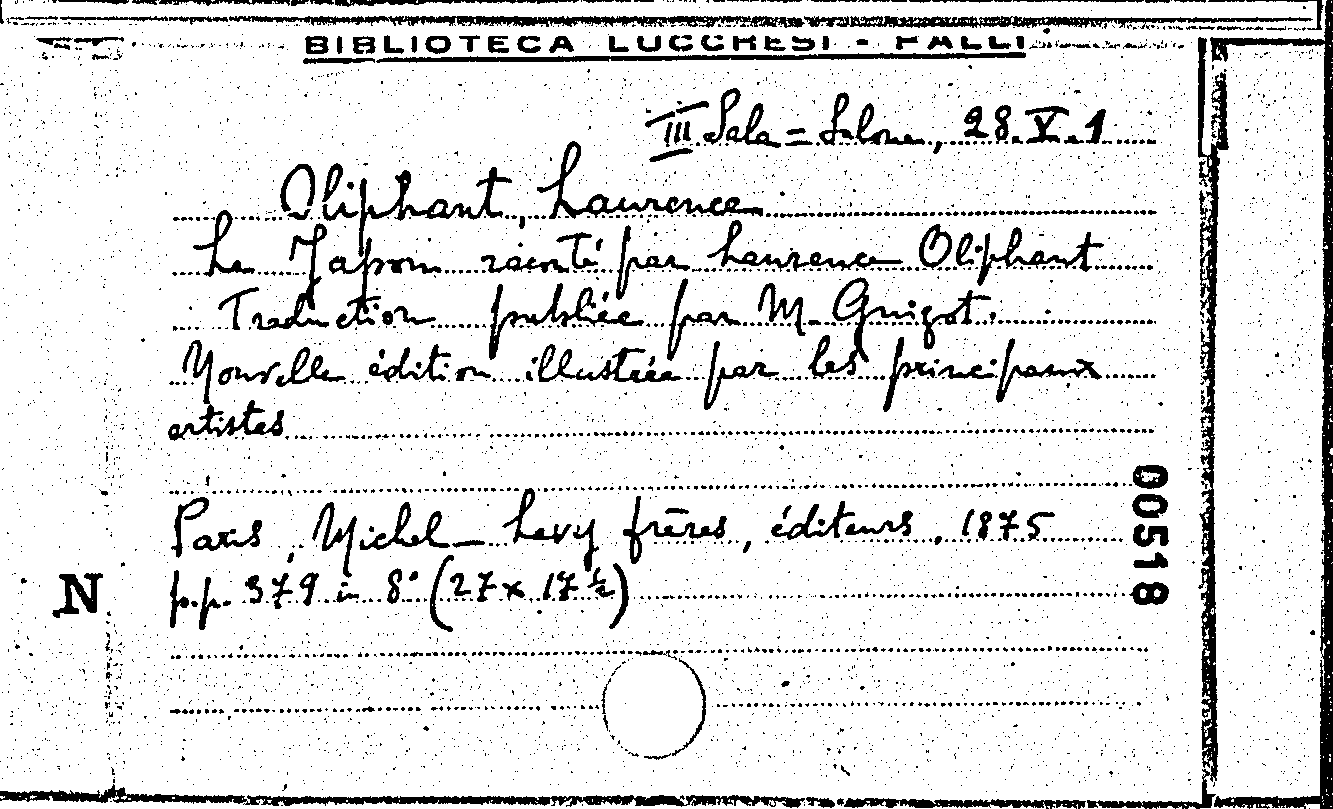 BIBLIOTECA LUCCHESI - PALLI
III Sala = Salone, 28.V.1
Oliphant, Laurence
Le Japon raconté par Laurence Oliphant
Traduction publiée par M. Guizot.
Nouvelle édition illustrée par les principaux
artistes
Paris, Michel-Levy frères, éditeurs, 1875
p.p. 379 in 8° (27 x 17 ½)
N
00518